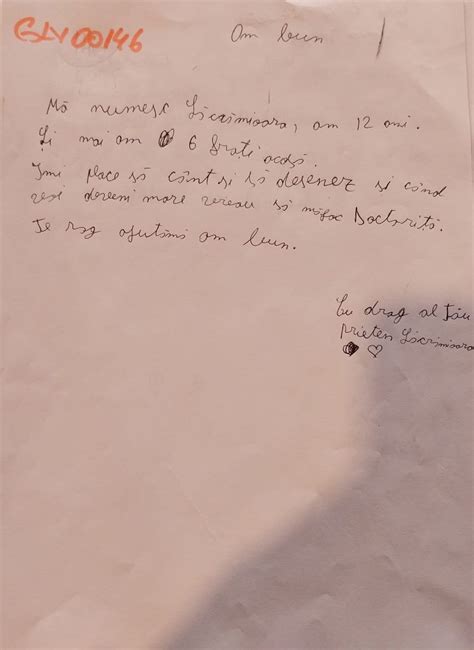 GLV00146
Om bun
Mă numesc Lăcrimioara, am 12 ani.
Și mai am 6 frati acasă.
Imi place să cânt si să desenez si când
voi deveni mare vereau să măfac Doctoriță.
Te rog ajutămi om bun.
Cu drag al tău
prieten Lăcrimioara